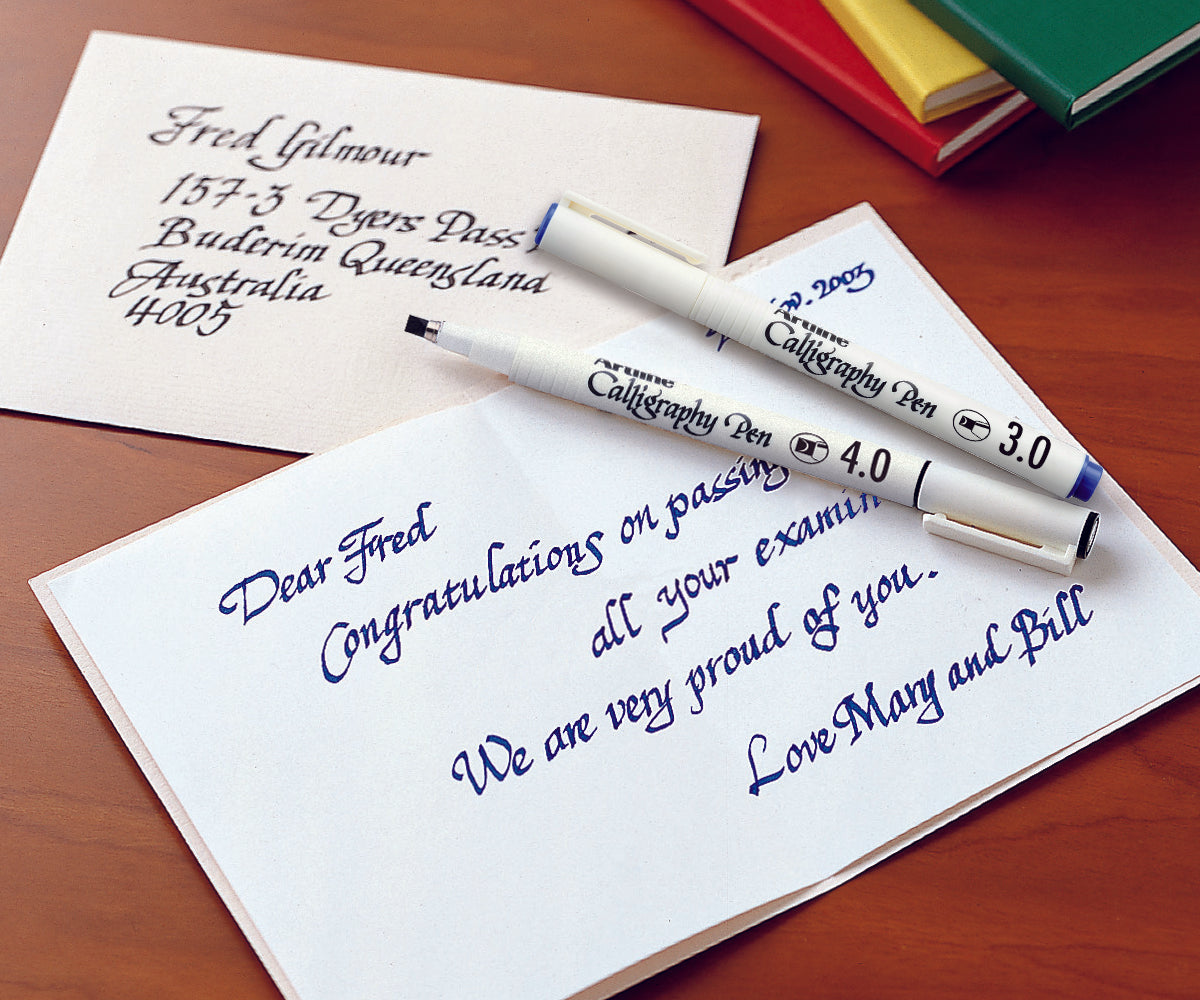 Fred Gilmour
157-3 Dyers Pass
Buderim Queensland
Australia
4005
2003
Artline
Calligraphy Pen 3.0
Artline
Calligraphy Pen 4.0
Dear Fred
Congratulations on passing
all your
We are very proud of you.
Love Mary and Bill